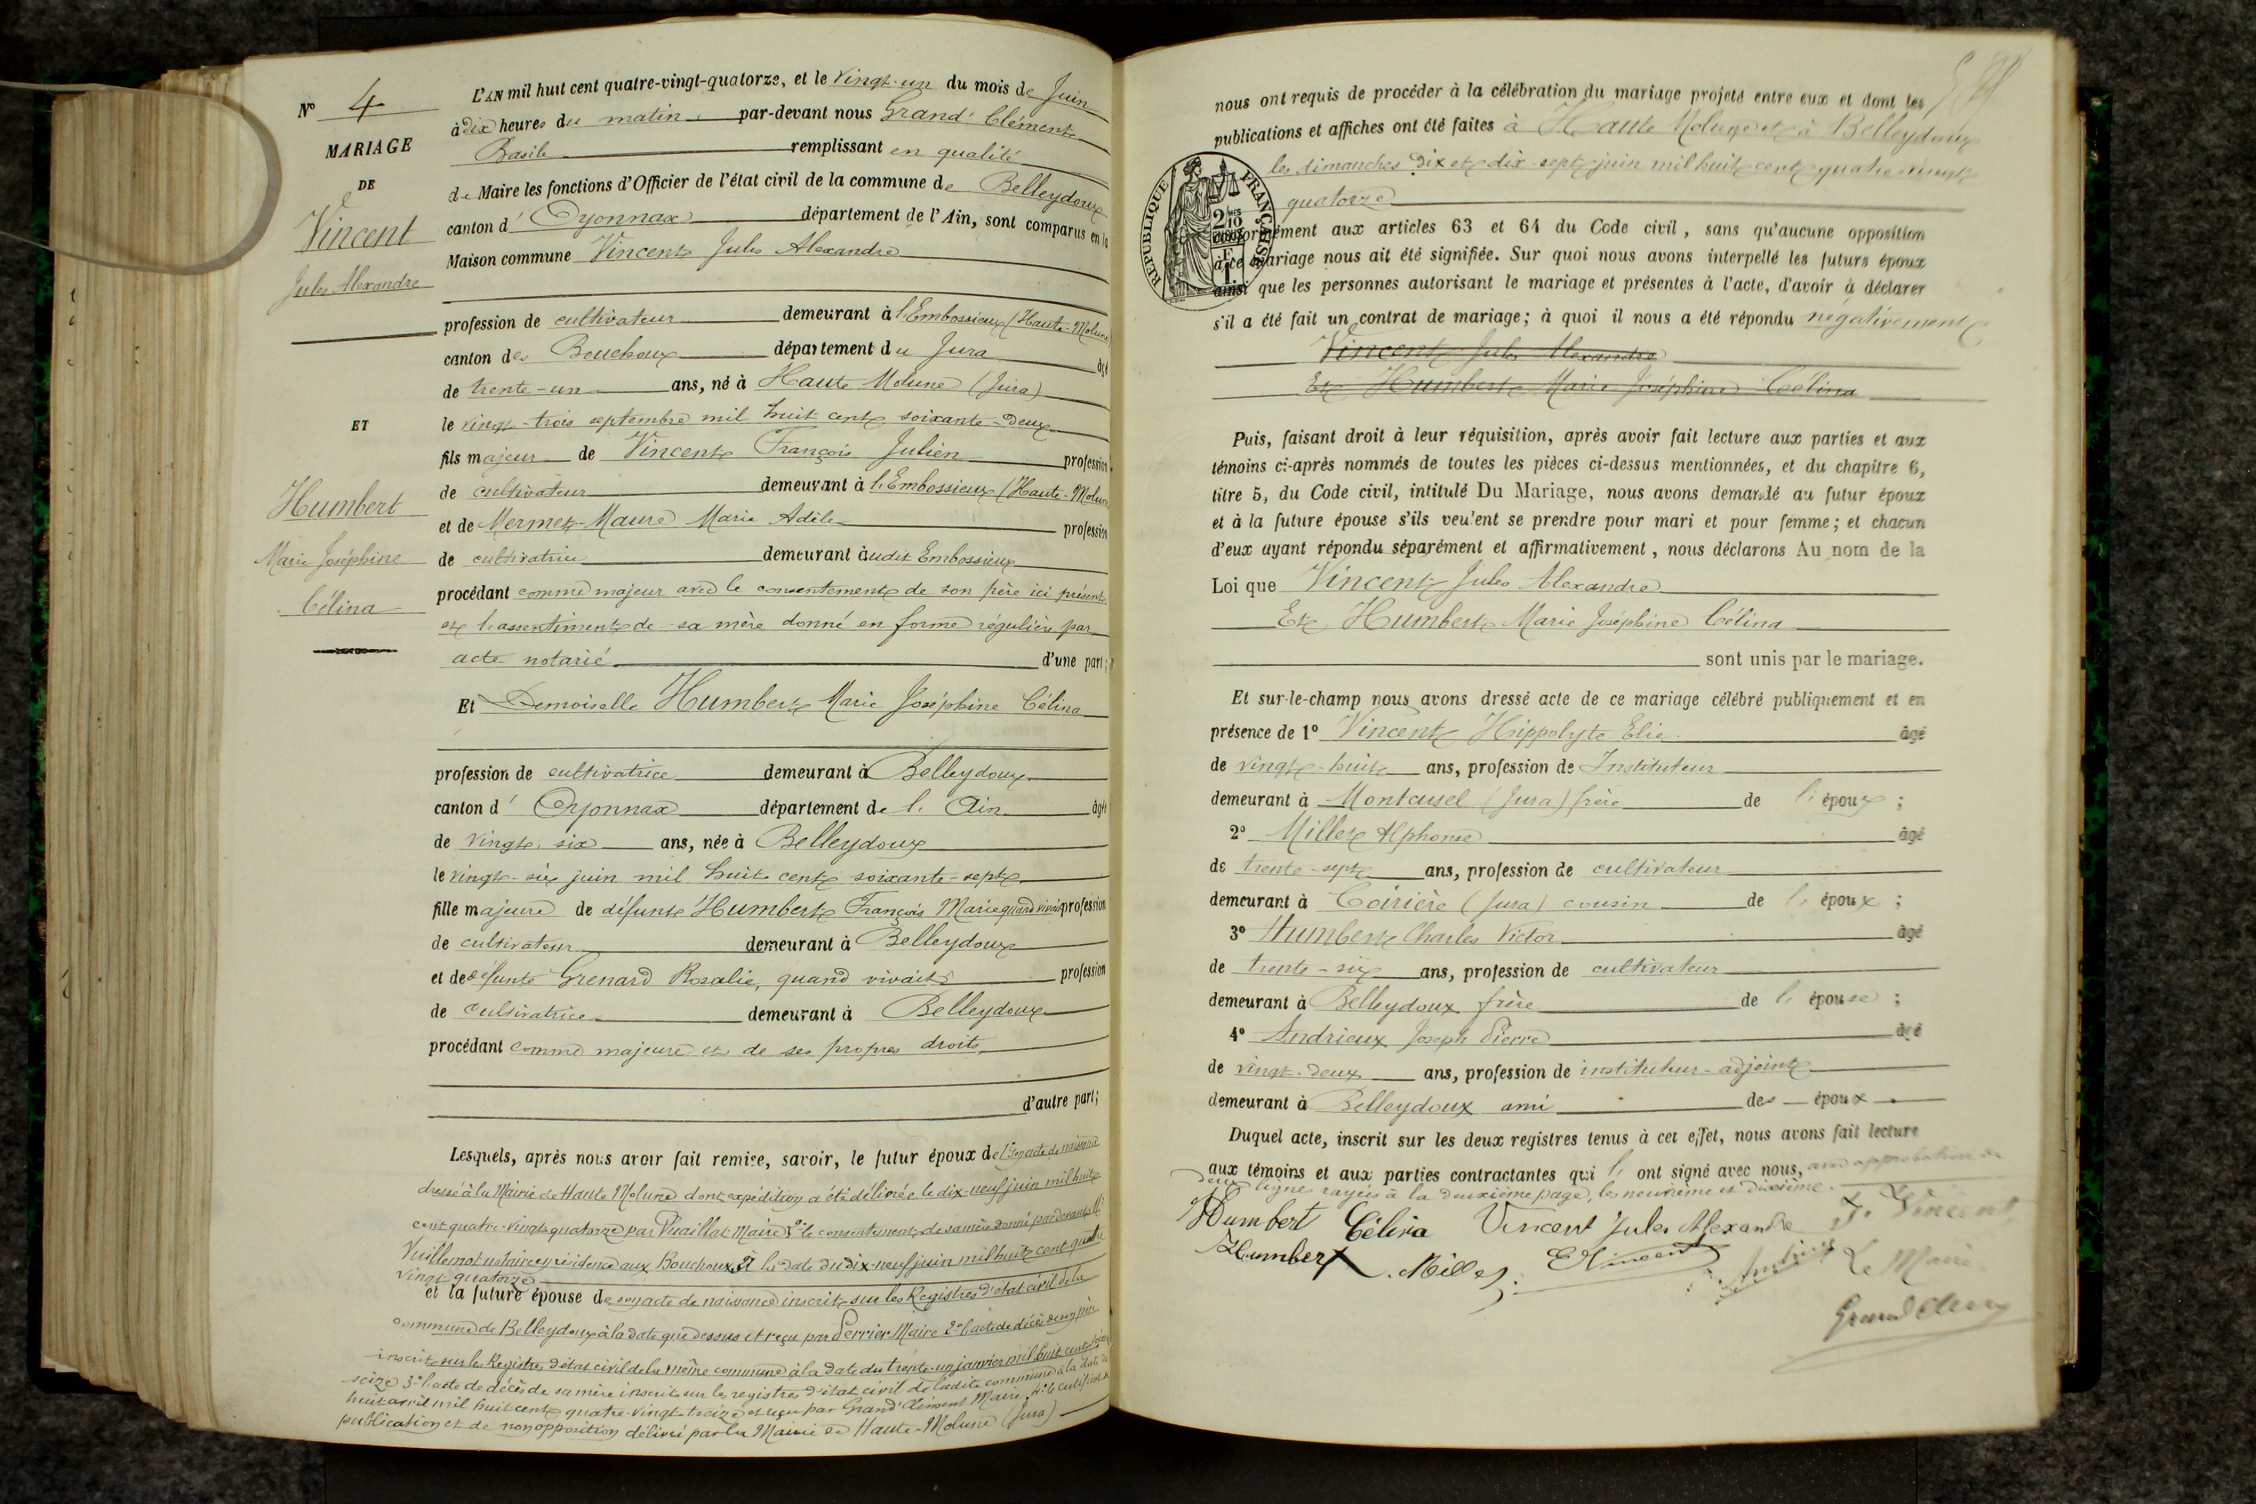 N° 4
MARIAGE
DE
Vincent
Jules Alexandre
ET
Humbert
Marie Joséphine
Célina
L'AN mil huit cent quatre-vingt-quatorze, et le vingt-un du mois de Juin
à dix heures du matin par-devant nous Grand' Clément
Basile remplissant en qualité
de Maire les fonctions d'Officier de l'état civil de la commune de Belleydoux
canton d' Oyonnax département de l'Ain, sont comparus en la
Maison commune Vincent Jules Alexandre
profession de cultivateur demeurant à l'Embossieux (Haute-Molune)
canton des Bouchoux département du Jura âgé
de trente-un ans, né à Haute Molune (Jura)
le vingt-trois septembre mil huit cent soixante-deux
fils majeur de Vincent François Julien profession
de cultivateur demeurant à l'Embossieux (Haute-Molune
et de Mermet-Maure Marie Adèle profession
de cultivatrice demeurant audit Embossieux
procédant comme majeur avec le consentement de son père ici présent
et l'assentiment de sa mère donné en forme régulière par
acte notarié d'une part;
Et Demoiselle Humbert Marie Joséphine Célina
profession de cultivatrice demeurant à Belleydoux
canton d' Oyonnax département de l' Ain âgée
de vingt-six ans, née à Belleydoux
le vingt-six juin mil huit cent soixante-sept
fille majeure de défunt Humbert François Marie quand vivait profession
de cultivateur demeurant à Belleydoux
et de défunte Grenard Rosalie, quand vivait profession
de cultivatrice demeurant à Belleydoux
procédant comme majeure et de ses propres droits
d'autre part;
Lesquels, après nous avoir fait remise, savoir, le futur époux de 1° son acte de naissance
dressé à la Mairie de Haute Molune dont expédition a été délivrée le dix-neuf juin mil huit
cent quatre-vingt quatorze par Vuaillat Maire 2° le consentement de sa mère donné par devant Me
Vuillemot notaire en résidence aux Bouchoux à la date du dix-neuf juin mil huit cent quatre
vingt quatorze
et la future épouse de son acte de naissance inscrit sur les Registres d'état civil de la
commune de Belleydoux à la date que dessus et reçu par Perrier Maire 2° l'acte de décès de son père
inscrit sur les Registres d'état civil de la même commune à la date du trente-un janvier mil huit cent
seize 3° l'acte de décès de sa mère inscrit sur le registre d'état civil de ladite commune à la date du
huit avril mil huit cent quatre-vingt-treize et reçu par Grand' Clément Maire, 4° le certificat de
publication et de non opposition délivré par la Mairie de Haute-Molune (Jura)
nous ont requis de procéder à la célébration du mariage projeté entre eux et dont les
publications et affiches ont été faites à Haute Molune et à Belleydoux
les dimanches dix et dix-sept juin mil huit cent quatre-vingt
quatorze
RÉPUBLIQUE FRANÇAISE
conformément aux articles 63 et 64 du Code civil, sans qu'aucune opposition
à ce mariage nous ait été signifiée. Sur quoi nous avons interpellé les futurs époux
ainsi que les personnes autorisant le mariage et présentes à l'acte, d'avoir à déclarer
s'il a été fait un contrat de mariage; à quoi il nous a été répondu négativement
Vincent Jules Alexandre
Et Humbert Marie Joséphine Célina
Puis, faisant droit à leur réquisition, après avoir fait lecture aux parties et aux
témoins ci-après nommés de toutes les pièces ci-dessus mentionnées, et du chapitre 6,
titre 5, du Code civil, intitulé Du Mariage, nous avons demandé au futur époux
et à la future épouse s'ils veulent se prendre pour mari et pour femme; et chacun
d'eux ayant répondu séparément et affirmativement, nous déclarons Au nom de la
Loi que Vincent Jules Alexandre
Et Humbert Marie Joséphine Célina
sont unis par le mariage.
Et sur-le-champ nous avons dressé acte de ce mariage célébré publiquement et en
présence de 1° Vincent Hippolyte Elie âgé
de vingt-huit ans, profession de Instituteur
demeurant à Montcusel (Jura) frère de l' époux ;
2° Millet Alphonse âgé
de trente-sept ans, profession de cultivateur
demeurant à Coirière (Jura) cousin de l' époux ;
3° Humbert Charles Victor âgé
de trente-six ans, profession de cultivateur
demeurant à Belleydoux frère de l' épouse ;
4° Andrieux Joseph Pierre âgé
de vingt-deux ans, profession de instituteur-adjoint
demeurant à Belleydoux ami des époux
Duquel acte, inscrit sur les deux registres tenus à cet effet, nous avons fait lecture
aux témoins et aux parties contractantes qui l' ont signé avec nous, avec approbation de
deux lignes rayées à la deuxième page, les neuvième et dixième.
Humbert Célina Vincent Jules Alexandre J. Vincent
Humbert Millet E Vincent Andrieux Le Maire
Grand Clément